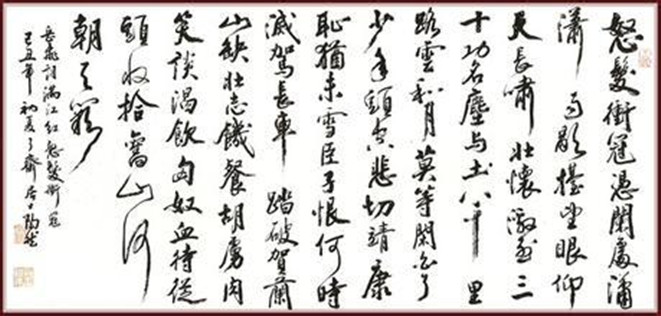 怒髮衝冠憑闌處瀟
瀟雨歇擡望眼仰
天長嘯壯懷激烈三
十功名塵与土八千里
路雲和月莫等閑白了
少年頭空悲切靖康
恥猶未雪臣子恨何時
滅駕長車踏破賀蘭
山缺壯志饑餐胡虜肉
笑談渴飲匈奴血待從
頭收拾舊山河
朝天闕
岳飛詞滿江紅怒髮衝冠
己丑年初夏